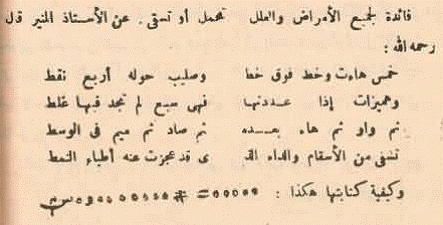 فائدة لجميع الأمراض والعلل تحمل أو تسقى . عن الأستاذ المنير قال
رحمه الله :
خمس هاءت وخط فوق خط وصليب حوله أربع نقط
وهميزات إذا عددتها فهى سبع لم تجد فيها غلط
ثم واو ثم هاء بعده ثم صاد ثم ميم فى الوسط
تشفى من الأسقام والداء الذ ى قد عجزت عنه أطباء النمط
وكيفية كتابتها هكذا :